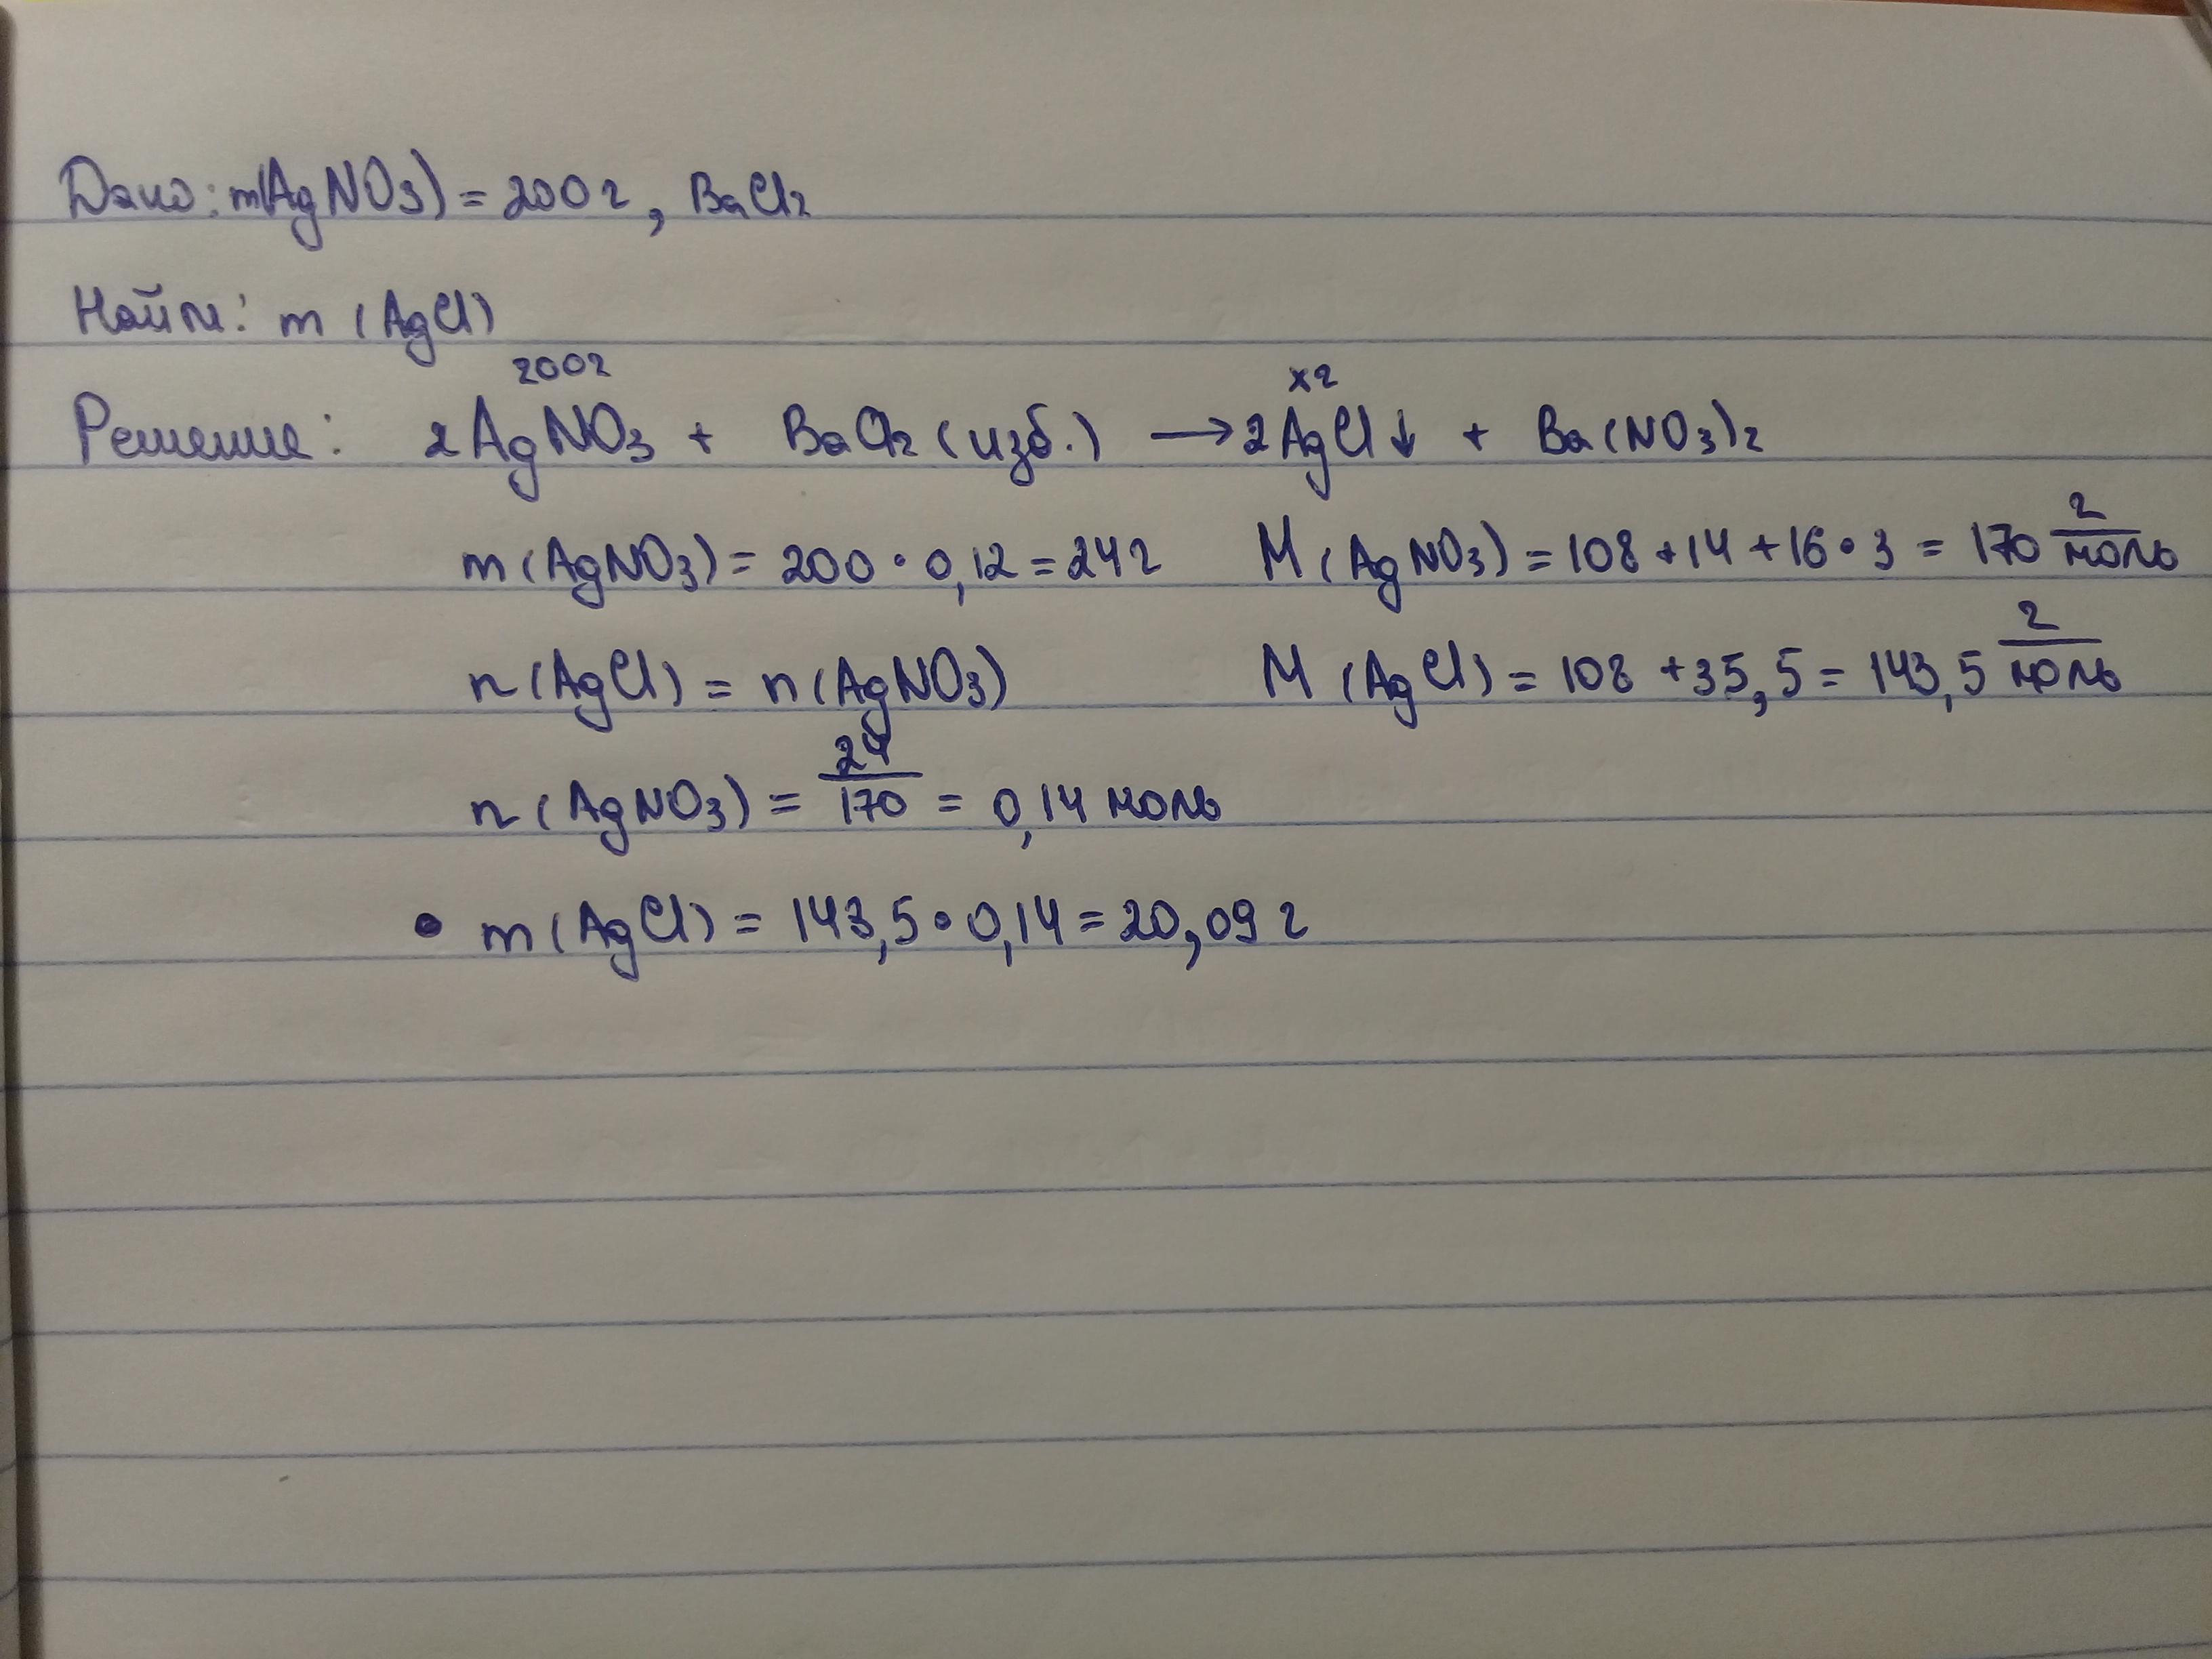 Дано: m(AgNO3) = 200 г, BaCl2
Найти: m (AgCl)
200г xг
Решение: 2AgNO3 + BaCl2 (изб.) → 2AgCl↓ + Ba(NO3)2
m(AgNO3) = 200 • 0,12 = 24 г M (AgNO3) = 108 + 14 + 16 • 3 = 170 г/моль
n(AgCl) = n(AgNO3) M (AgCl) = 108 + 35,5 = 143,5 г/моль
n (AgNO3) = 24/170 = 0,14 моль
• m(AgCl) = 143,5 • 0,14 = 20,09 г